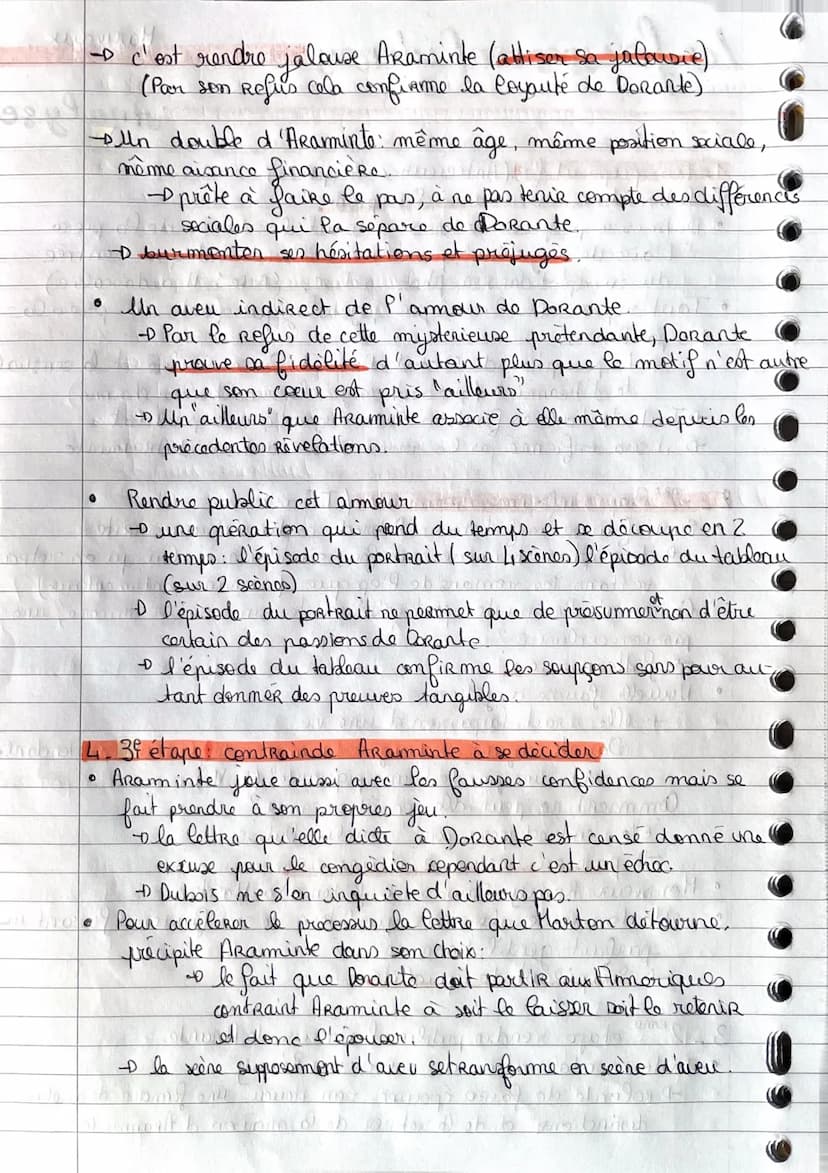 → c'est rendre jalouse Araminte (attiser sa jalousie)
(Par son Refus cela confirme la loyauté de Dorante)
→ Un double d'Araminte: même âge, même position sociale,
même aisance financière.
→ prête à faire le pas, à ne pas tenir compte des différences
sociales qui la sépare de Dorante.
→ surmonter ses hésitations et préjugés.
• Un aveu indirect de l'amour de Dorante.
→ Par le Refus de cette mystérieuse prétendante, Dorante
prouve sa fidélité d'autant plus que le motif n'est autre
que son coeur est pris "ailleurs"
→ Un "ailleurs" que Araminte associe à elle même depuis les
précedentes Révélations.
• Rendre public cet amour
→ une opération qui prend du temps et se découpe en 2
temps: l'épisode du portrait (sur 4 scènes) l'épisode du tableau
(sur 2 scènes)
→ l'épisode du portrait ne permet que de présummer et non d'être
certain des passions de Dorante.
→ l'épisode du tableau confirme les soupçons sans pour au-
tant donner des preuves tangibles.
4. 3e étape: contrainde Araminte à se décider
• Araminte joue aussi avec les fausses confidences mais se
fait prendre à son propres jeu.
→ la lettre qu'elle dicte à Dorante est censé donné une
excuse pour le congédier cependant c'est un échec.
→ Dubois ne s'en inquiète d'ailleurs pas.
• Pour accélerer le processus la lettre que Marton détourne,
précipite Araminte dans son choix:
→ le fait que Dorante doit partir aux Amériques
contraint Araminte à soit le laisser soit le retenir
et donc l'épouser.
→ la scène supposement d'aveu se transforme en scène d'aveu.